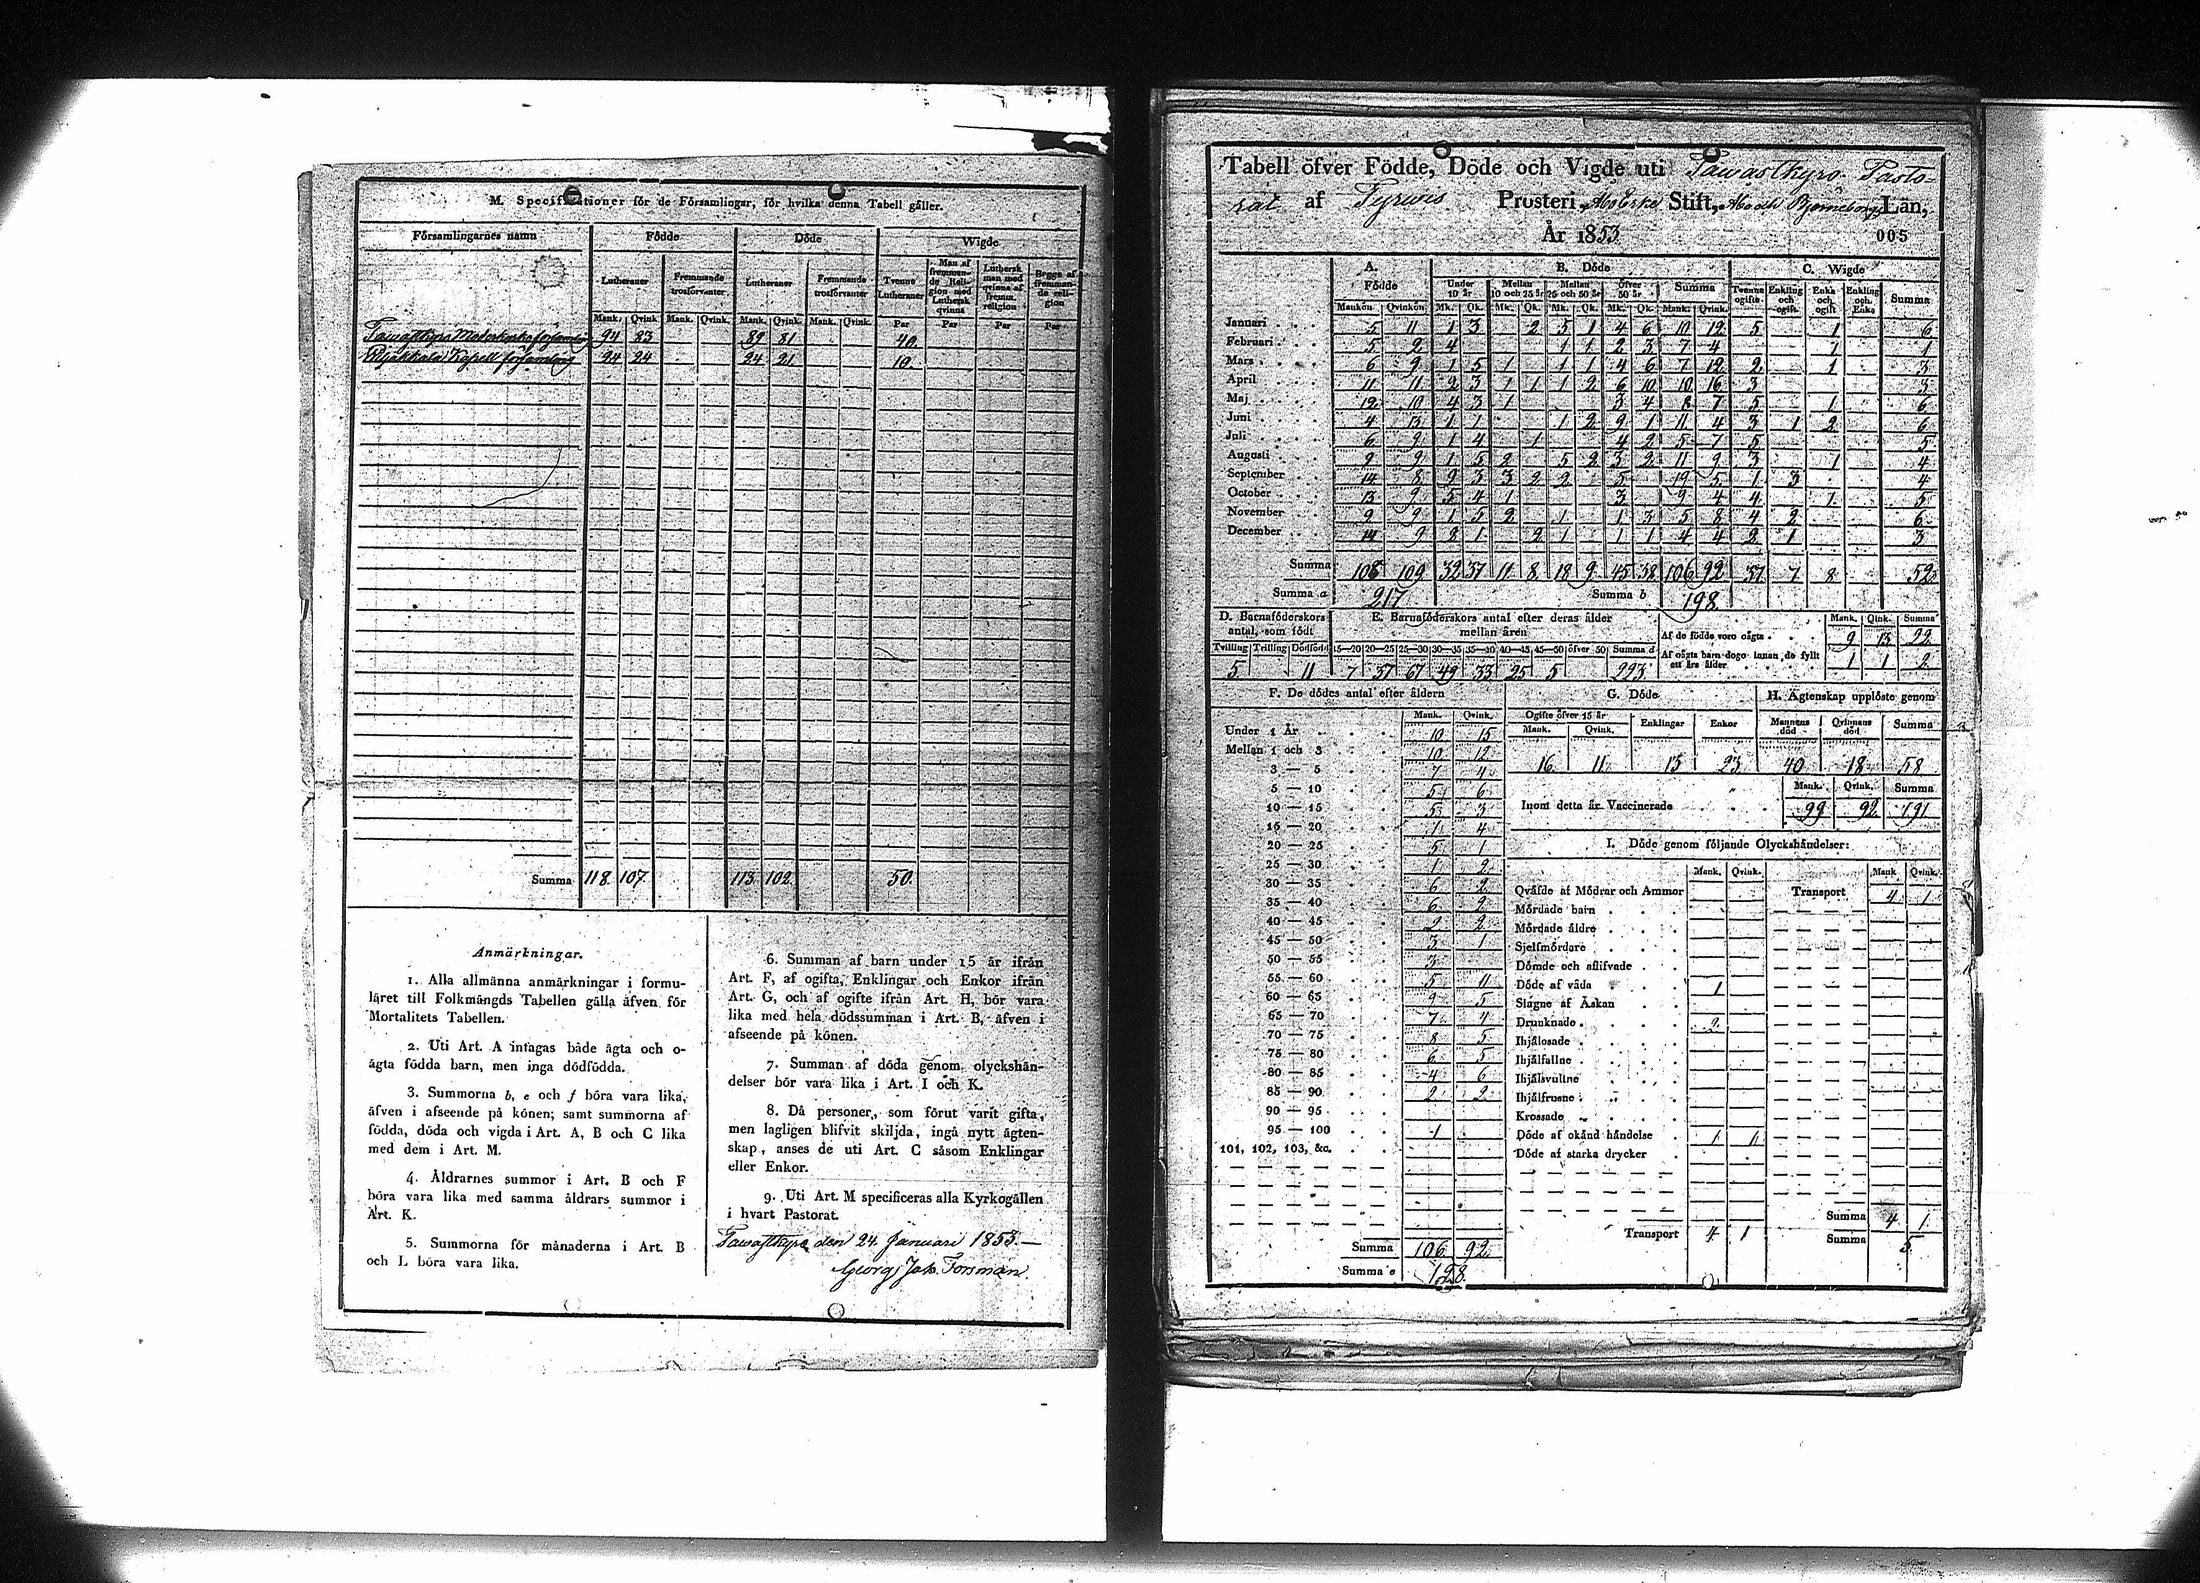 M. Specifikationer för de Församlingar, för hvilka denna Tabell gäller.
Församlingarnes namn Födde Döde Wigde
Lutheraner Fremmande trosförvanter Lutheraner Fremmande trosförvanter Tvenne Lutheraner Man af fremmande Religion med Luthersk qvinna Luthersk man med qvinna af fremm. religion Begge af fremmande religion
Mank. Qvink. Mank. Qvink. Mank. Qvink. Mank. Qvink. Par Par Par Par
Tawastkyro Moderkyrkoförsamling 94 83 89 81 40.
Kapell församling 24 24 24 21 10.
Summa 118. 107. 113. 102. 50.
Anmärkningar.
1. Alla allmänna anmärkningar i formu-
läret till Folkmängds Tabellen gälla äfven för
Mortalitets Tabellen.
2. Uti Art. A intagas både ägta och o-
ägta födda barn, men inga dödfödda.
3. Summorna b, e och f böra vara lika,
äfven i afseende på könen; samt summorna af
födda, döda och vigda i Art. A, B och C lika
med dem i Art. M.
4. Åldrarnes summor i Art. B och F
böra vara lika med samma åldrars summor i
Art. K.
5. Summorna för månaderna i Art. B
och L böra vara lika.
6. Summan af barn under 15 år ifrån
Art. F, af ogifta, Enklingar och Enkor ifrån
Art. G, och af ogifte ifrån Art. H, bör vara
lika med hela dödssumman i Art. B, äfven i
afseende på könen.
7. Summan af döda genom olyckshän-
delser bör vara lika i Art. I och K.
8. Då personer, som förut varit gifta,
men lagligen blifvit skiljda, ingå nytt ägten-
skap, anses de uti Art. C såsom Enklingar
eller Enkor.
9. Uti Art. M specificeras alla Kyrkogällen
i hvart Pastorat.
Tawastkyro den 24. Januari 1853.
Georg Jak. Forsman.
Tabell öfver Födde, Döde och Vigde uti Tawastkyro Pasto-
rat af Tyrwis Prosteri, Åbo Erke Stift, Åbo och Björneborgs Län,
År 1853
005
A. Födde B. Döde C. Wigde
Under 10 år Mellan 10 och 25 år Mellan 25 och 50 år Öfver 50 år Summa Tvenne ogifte Enkling och ogift Enka och ogift Enkling och Enka Summa
Mankön Qvinkön Mk. Qk. Mk. Qk. Mk. Qk. Mk. Qk. Mank. Qvink.
Januari 5 11 1 3 2 5 1 4 6 10 12 5 1 6
Februari 5 2 4 1 1 2 3 7 4 1 1
Mars 6 9 1 5 1 1 1 4 6 7 12 2 1 3
April 11 11 2 3 1 1 1 2 6 10 10 16 3 3
Maj 12 10 4 3 1 3 4 8 7 5 1 6
Juni 4 13 1 1 1 2 9 1 11 4 3 1 2 6
Juli 6 9 1 4 1 4 2 5 7 5 5
Augusti 9 9 1 5 2 5 2 3 2 11 9 3 1 4
September 14 8 9 3 3 2 2 5 19 5 1 3 4
October 13 9 5 4 1 3 9 4 4 1 5
November 9 9 1 5 2 1 1 3 5 8 4 2 6
December 14 9 2 1 2 1 1 1 4 4 2 1 3
Summa 108 109 32 37 11 8 18 9 45 38 106 92 37 7 8 52
Summa a 217 Summa b 198
D. Barnaföderskors antal, som födt
Tvilling Trilling Dödfödd
5 11
E. Barnaföderskors antal efter deras ålder mellan åren
15—20 20—25 25—30 30—35 35—40 40—45 45—50 öfver 50 Summa d
7 37 67 49 33 25 5 223
Mank. Qink. Summa
Af de födde voro oägta 9 13 22
Af oägta barn dogo innan de fyllt ett års ålder 1 1 2
F. De dödes antal efter åldern
Mank. Qvink.
Under 1 År 10 15
Mellan 1 och 3 10 12
3 — 5 7 4
5 — 10 5 6
10 — 15 5 3
15 — 20 1 4
20 — 25 5 1
25 — 30 1 2
30 — 35 6 2
35 — 40 6 2
40 — 45 2 2
45 — 50 3 1
50 — 55 3
55 — 60 5 11
60 — 65 9 5
65 — 70 7 4
70 — 75 8 5
75 — 80 6 5
80 — 85 4 6
85 — 90 2 2
90 — 95
95 — 100 1
101, 102, 103, &c.
Summa 106 92
Summa e 198
G. Döde
Ogifte öfver 15 år Enklingar Enkor
Mank. Qvink.
16 11 13 23
H. Ägtenskap upplöste genom
Mannens död Qvinnans död Summa
40 18 58
Mank. Qvink. Summa
Inom detta år Vaccinerade 99 92 191
I. Döde genom följande Olyckshändelser:
Mank. Qvink. Mank. Qvink.
Qväfde af Mödrar och Ammor Transport 4 1
Mördade barn
Mördade äldre
Sjelfmördare
Dömde och aflifvade
Döde af våda 1
Slagne af Åskan
Drunknade 2
Ihjälosade
Ihjälfallne
Ihjälsvultne
Ihjälfrusne
Krossade
Döde af okänd händelse 1 1
Döde af starka drycker
Transport 4 1
Summa 4 1
Summa 5